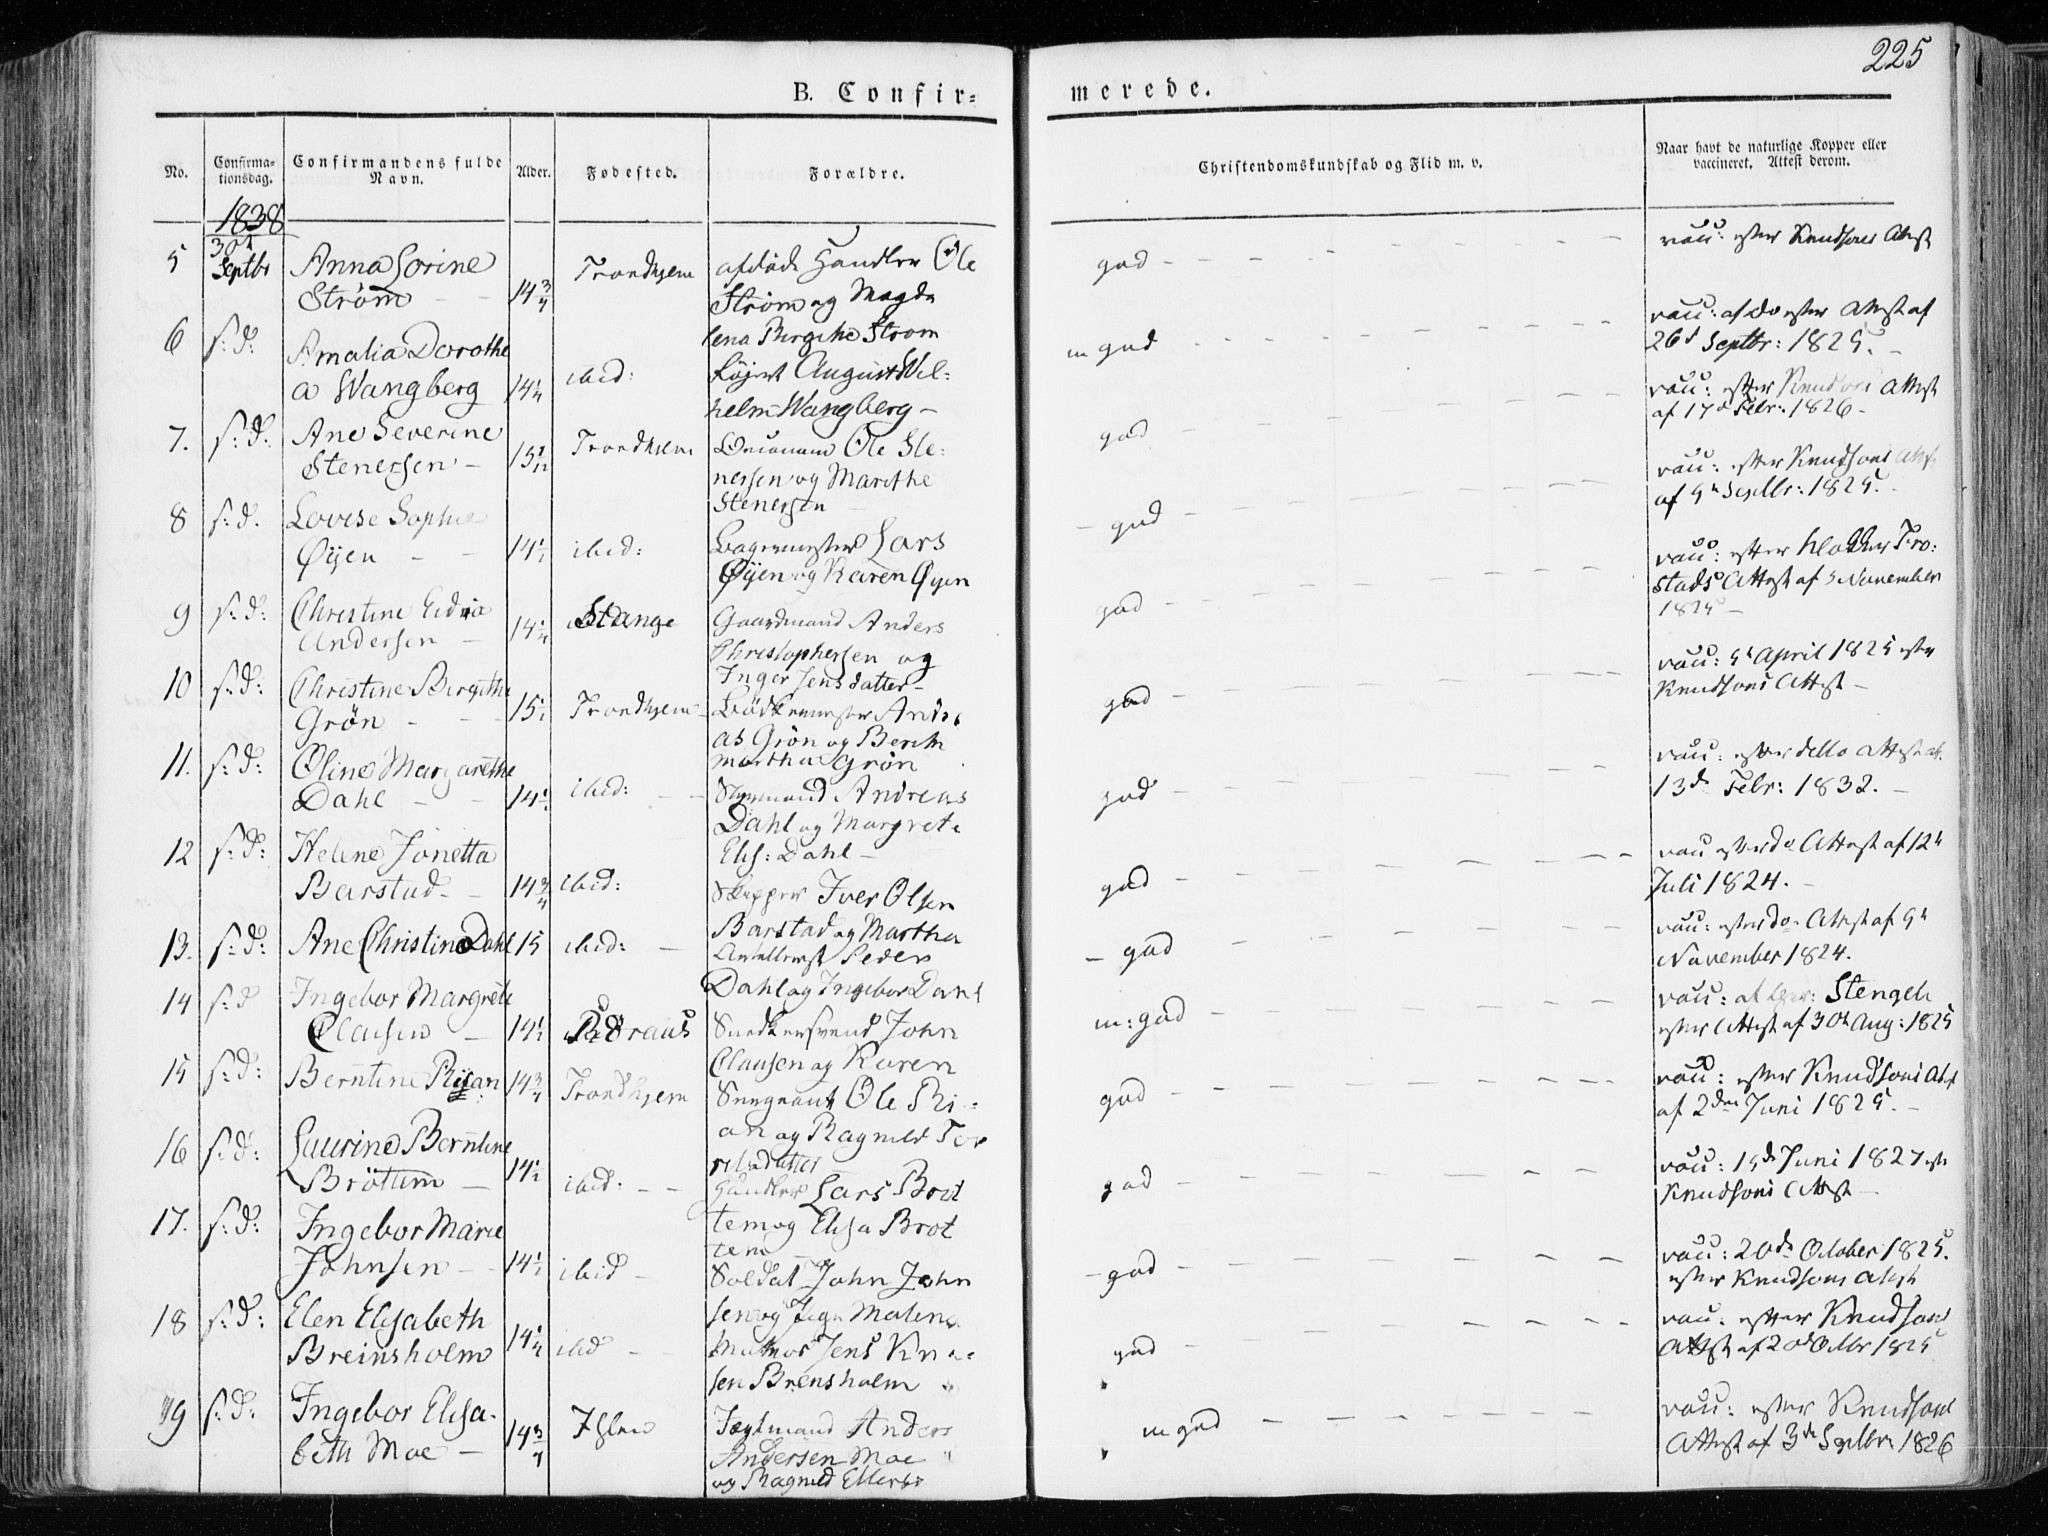 225
B. Confir=
merede.
No.
Confirma-
tionsdag.
Confirmandens fulde
Navn.
Alder.
Fødested.
Forældre.
Christendomskundskab og Flid m. v.
Naar havt de naturlige Kopper eller
vaccineret. Attest derom.
1838
5 30t Septbr Anna Sorine
Strøm 14 3/4 Trondhjem
afdøde Handler Ole
Strøm og Magda
lena Birgithe Strøm
god
vacc: efter Knudsons Attest
6 s: d: Amalia Dorothe
a Wangberg 14 1/4 ibid:
August Wil=
helm Wangberg
m god
vacc: efter Attest af
26d Septbr: 1825.
7. s: d: Ane Severine
Stenersen 15 Trondhjem
Ole Ste:
nersen og Marithe
Stenersen
god
vacc: efter Knudsons Attest
af 17d Febr: 1826
8 s: d. Lovise Sophie
Øyen 14 1/2 ibid:
Bagermester Lars
Øyen og Karen Øyen
god
vacc: efter Knudsons Attest
af Septbr: 1825.
9 s: d: Christine
Andersen 14 1/4 Stange
Gaardmand Anders
Christophersen og
Inger Jensdatter
god
vacc: efter Klokker Fro:
stads Attest af November
1825
10 s: d: Christine Birgithe
Grön 15 Trondhjem
Bødkermester Andre
as Grön og Berith
Martha Grön
god
vacc: April 1825 efter
Knudsons Attest
11. s: d: Oline Margarethe
Dahl 14 1/2 ibid:
Styrmand Andreas
Dahl og Margrete
Elis: Dahl
god
vacc: efter ditto Attest af
13de Febr: 1832.
12 s: d: Helene Jonetta
Barstad 14 3/4 ibid:
Skipper Iver Olsen
Barstad og Martha
god
vacc efter do Attest af 12t
Juli 1824.
13. s: d: Ane Christine Dahl 15 ibid:
Peder
Dahl og Ingebor Dahl
god
vacc: efter do Attest af 9t
November 1824.
14 s: d Ingebor Margrete
Clausen 14 1/2
Snedkersvend John
Clausen og Karen
m: god
vacc: af Stengel
efter Attest af 30t Aug: 1825
15 s: d: Berntine Risan 14 3/4 Trondhjem
Sergeant Ole Ri=
an og Ragnild
god
vacc: efter Knudsons Attest
af 2den Juni 1825.
16 s: d: Laurine Berntine
Bröttem 14 1/2 ibid:
Handler Lars Bröt
tem og Elisa Bröt
tem
god
vacc: 15de Juni 1827 efter
Knudsons Attest
17. s: d: Ingebor Marie
Johnsen 14 1/2 ibid
Soldat John John
sen og Malena
god
vacc: 20de October 1825.
efter Knudsons Attest
18 s: d: Elen Elisabeth
Breinsholm 14 1/4 ibid
Jens
sen Brensholm
god
vacc: efter Knudsons
Attest af 20de 1825
19 s: d: Ingebor Elisa-
beth Moe 14 3/4 Ihlen
Jægtmand Anders
Andersen Moe
og Ragnild
m god
vacc: efter Knudsons
Attest af 3de Septbr: 1826